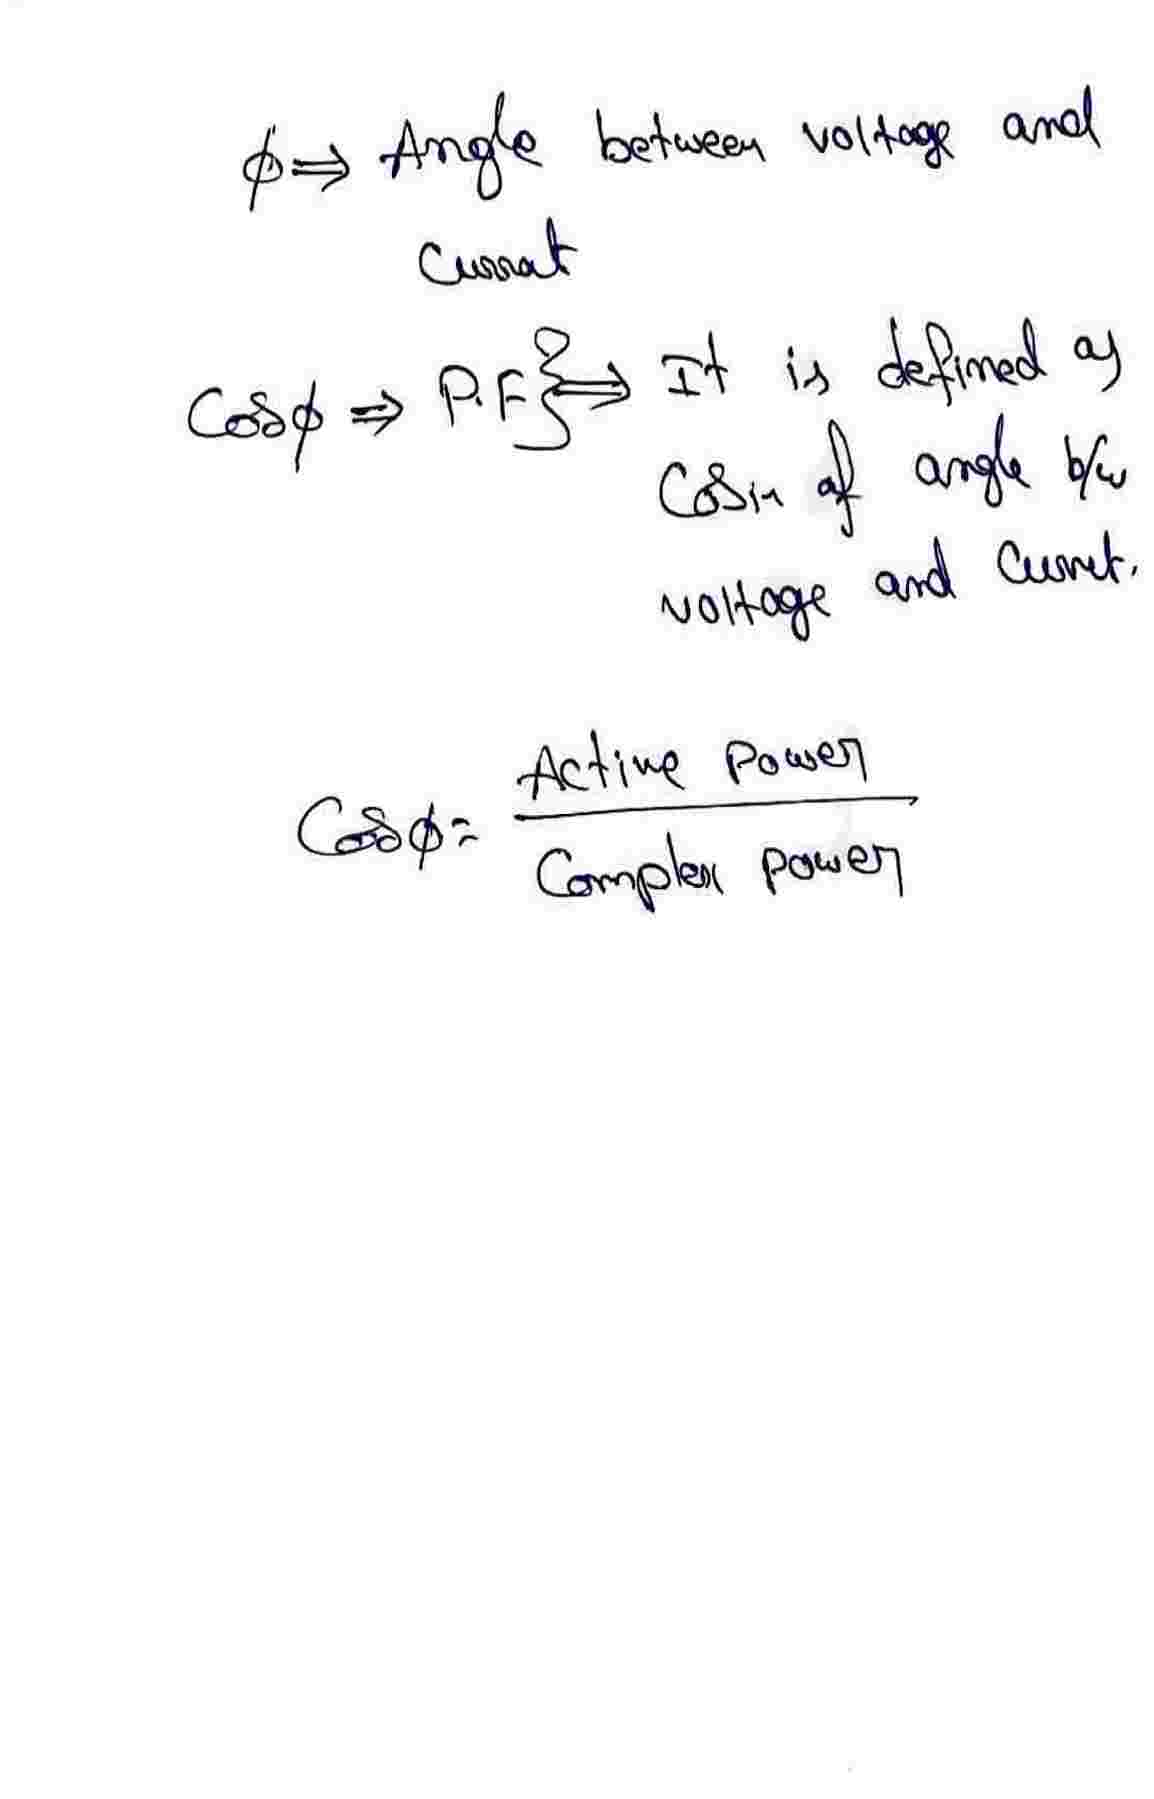 ϕ ⇒ Angle between voltage and
Currat
Cosϕ ⇒ P.F} ⇒ It is defined as
Cosin of angle b/w
voltage and Curret.
Cosϕ = Active Power
Complex power